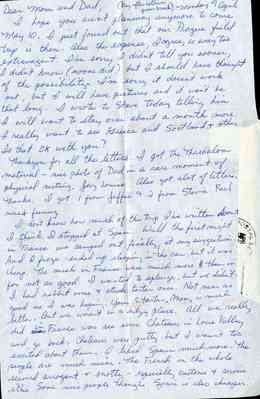 Dear Mom and Dad,
I hope you aren't planning anymore to come
May 10. I just found out that our Prague field
trip is then. Also the expense, I agree, is way too
extravagant. I'm sorry I didn't tell you sooner,
I didn't know (no one did) but I should have thought
of the possibility. I'm sorry it doesn't work
out, but I will have pictures and it won't be
that long. I wrote to Steve today telling him
I will want to stay over about a month more.
I really want to see Greece and Scotland & other
So that OK with you?
Thank you for all the letters. I got the
material - nice photo of Dad in a rare moment of
physical resting. Also got alot of letters.
Thanks. I got 1 from Jeffer & 2 from Steve. Paul
was funny.
I don't know how much of the trip I've written about
I think I stopped at Spain. Well the first night
in France we camped out finally, at my suggestion
And 2 guys ended up sleeping in the car, but it was
cheap. The meals in France were much more $ than in
for not as good. I wanted to splurge, but we didn't.
I had rabbit once & steak tartar once. Not near as
good as I was hoping. Your tartar, Mom, is much
better. But we weren't in a ritzy place. All we really
did in France was see some Chateaus in Loire Valley
and go back. Chateaus were pretty but I wasn't too
excited about them. I liked Spain much more. The
people are much nicer. The French on the whole
seemed arrogant & snotty - especially waiters & service
Some nice people though. Spain is also cheaper